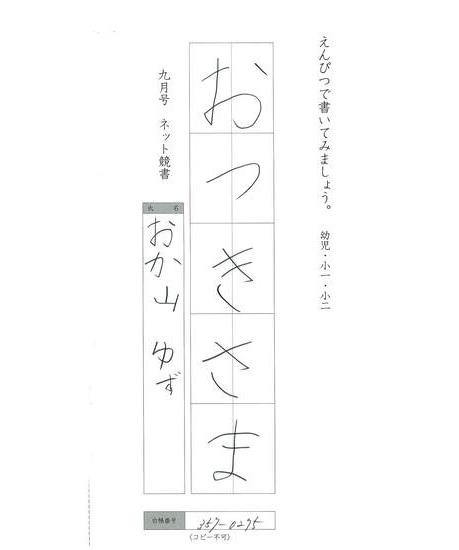 えんぴつで書いてみましょう。 幼児・小一・小二
おつきさま
九月号 ネット競書
氏名
おか山 ゆず
台帳番号 357-0275
(コピー不可)